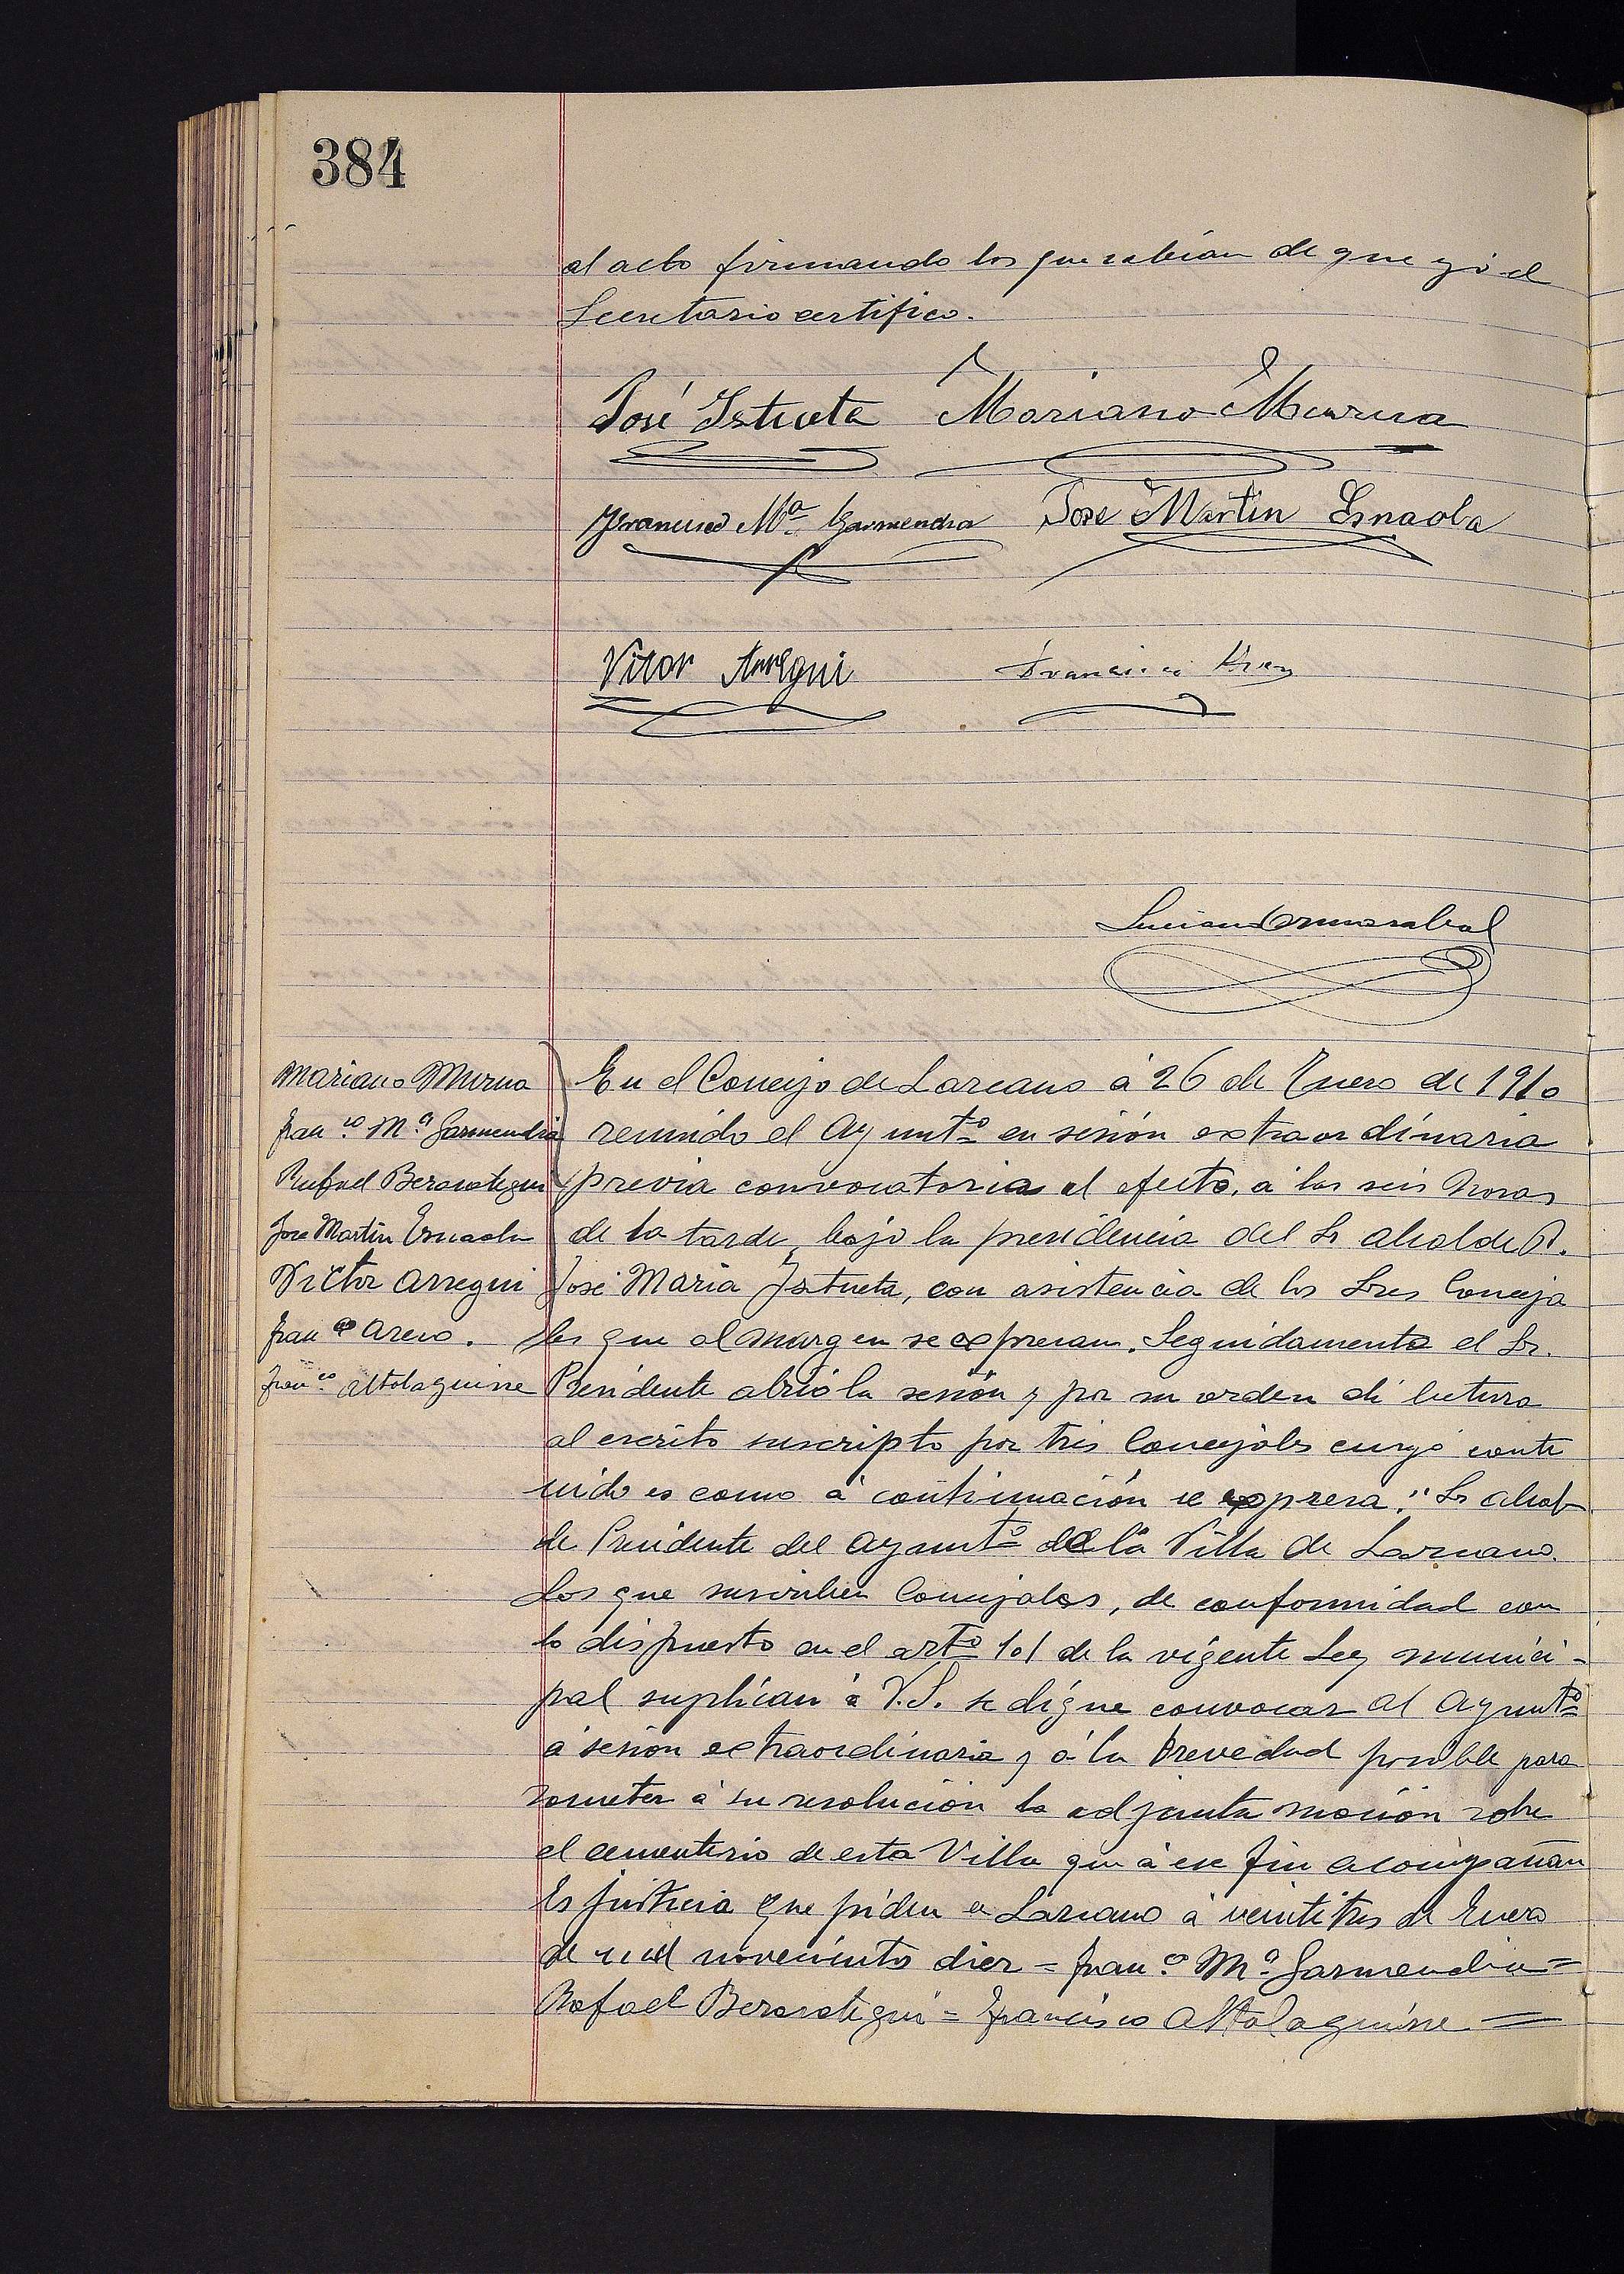 384
al acto firmando los que sabían de que yó el
Secretario certifico.
José Istueta Mariano Murua
Francisco Mª Garmendia José Martin Esnaola
Vitor Arregui Francisco
Luciano
Mariano Murua
Fran.co M.ª Garmendia
Rafael Berasategui
Jose Martin Esnaola
Victor Arregui
Fran.co
Fran.co Altolaguirre
En el Concejo de Lazcano á 26 de Enero de 1910
reunido el Ayuntº en sesión extraordinaria
previa convocatoria al efecto, á las seis horas
de la tarde, bajo la presidencia del Sr Alcalde D.
José Maria Istueta, con asistencia de los Sres Conceja
les que al margen se expresan. Seguidamente el Sr.
Presidente abrió la sesión y por su orden di lectura
al escrito suscripto por tres Concejales cuyo conte
nido es como á continuación se expresa: "Sr Alcal-
de Presidente del Ayuntº de la Villa de Lazcano.
Los que suscriben Concejales, de conformidad con
lo dispuesto en el artº 101 de la vigente Ley munici-
pal suplican á V.S. se digne convocar al Ayuntº
á sesión extraordinaria y á la brevedad posible para
someter á su resolución la adjunta moción sobre
el cementerio de esta Villa que á ese fin acompañan
Es justicia que piden en Lazcano á veintitres de Enero
de mil novecientos diez = Fran.co M.ª Garmendia =
Rafael Berasategui = Francisco Altolaguirre =